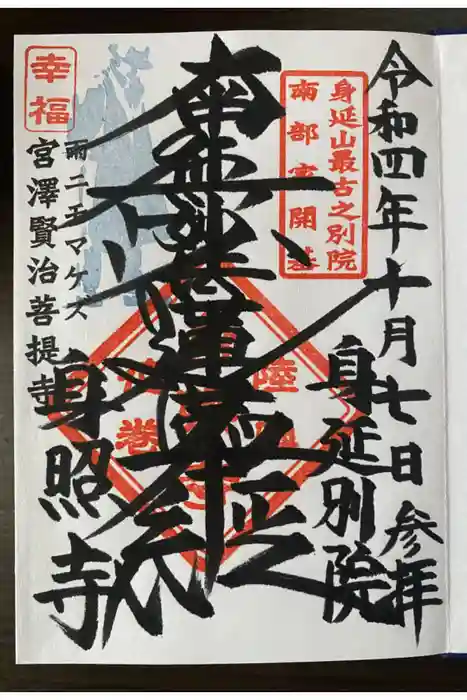 令和四年十月七日参拝
身延別院
身延山最古之別院
南部家開基
南無妙法蓮華経
幸福
雨ニモマケズ
宮澤賢治菩提寺
身照寺